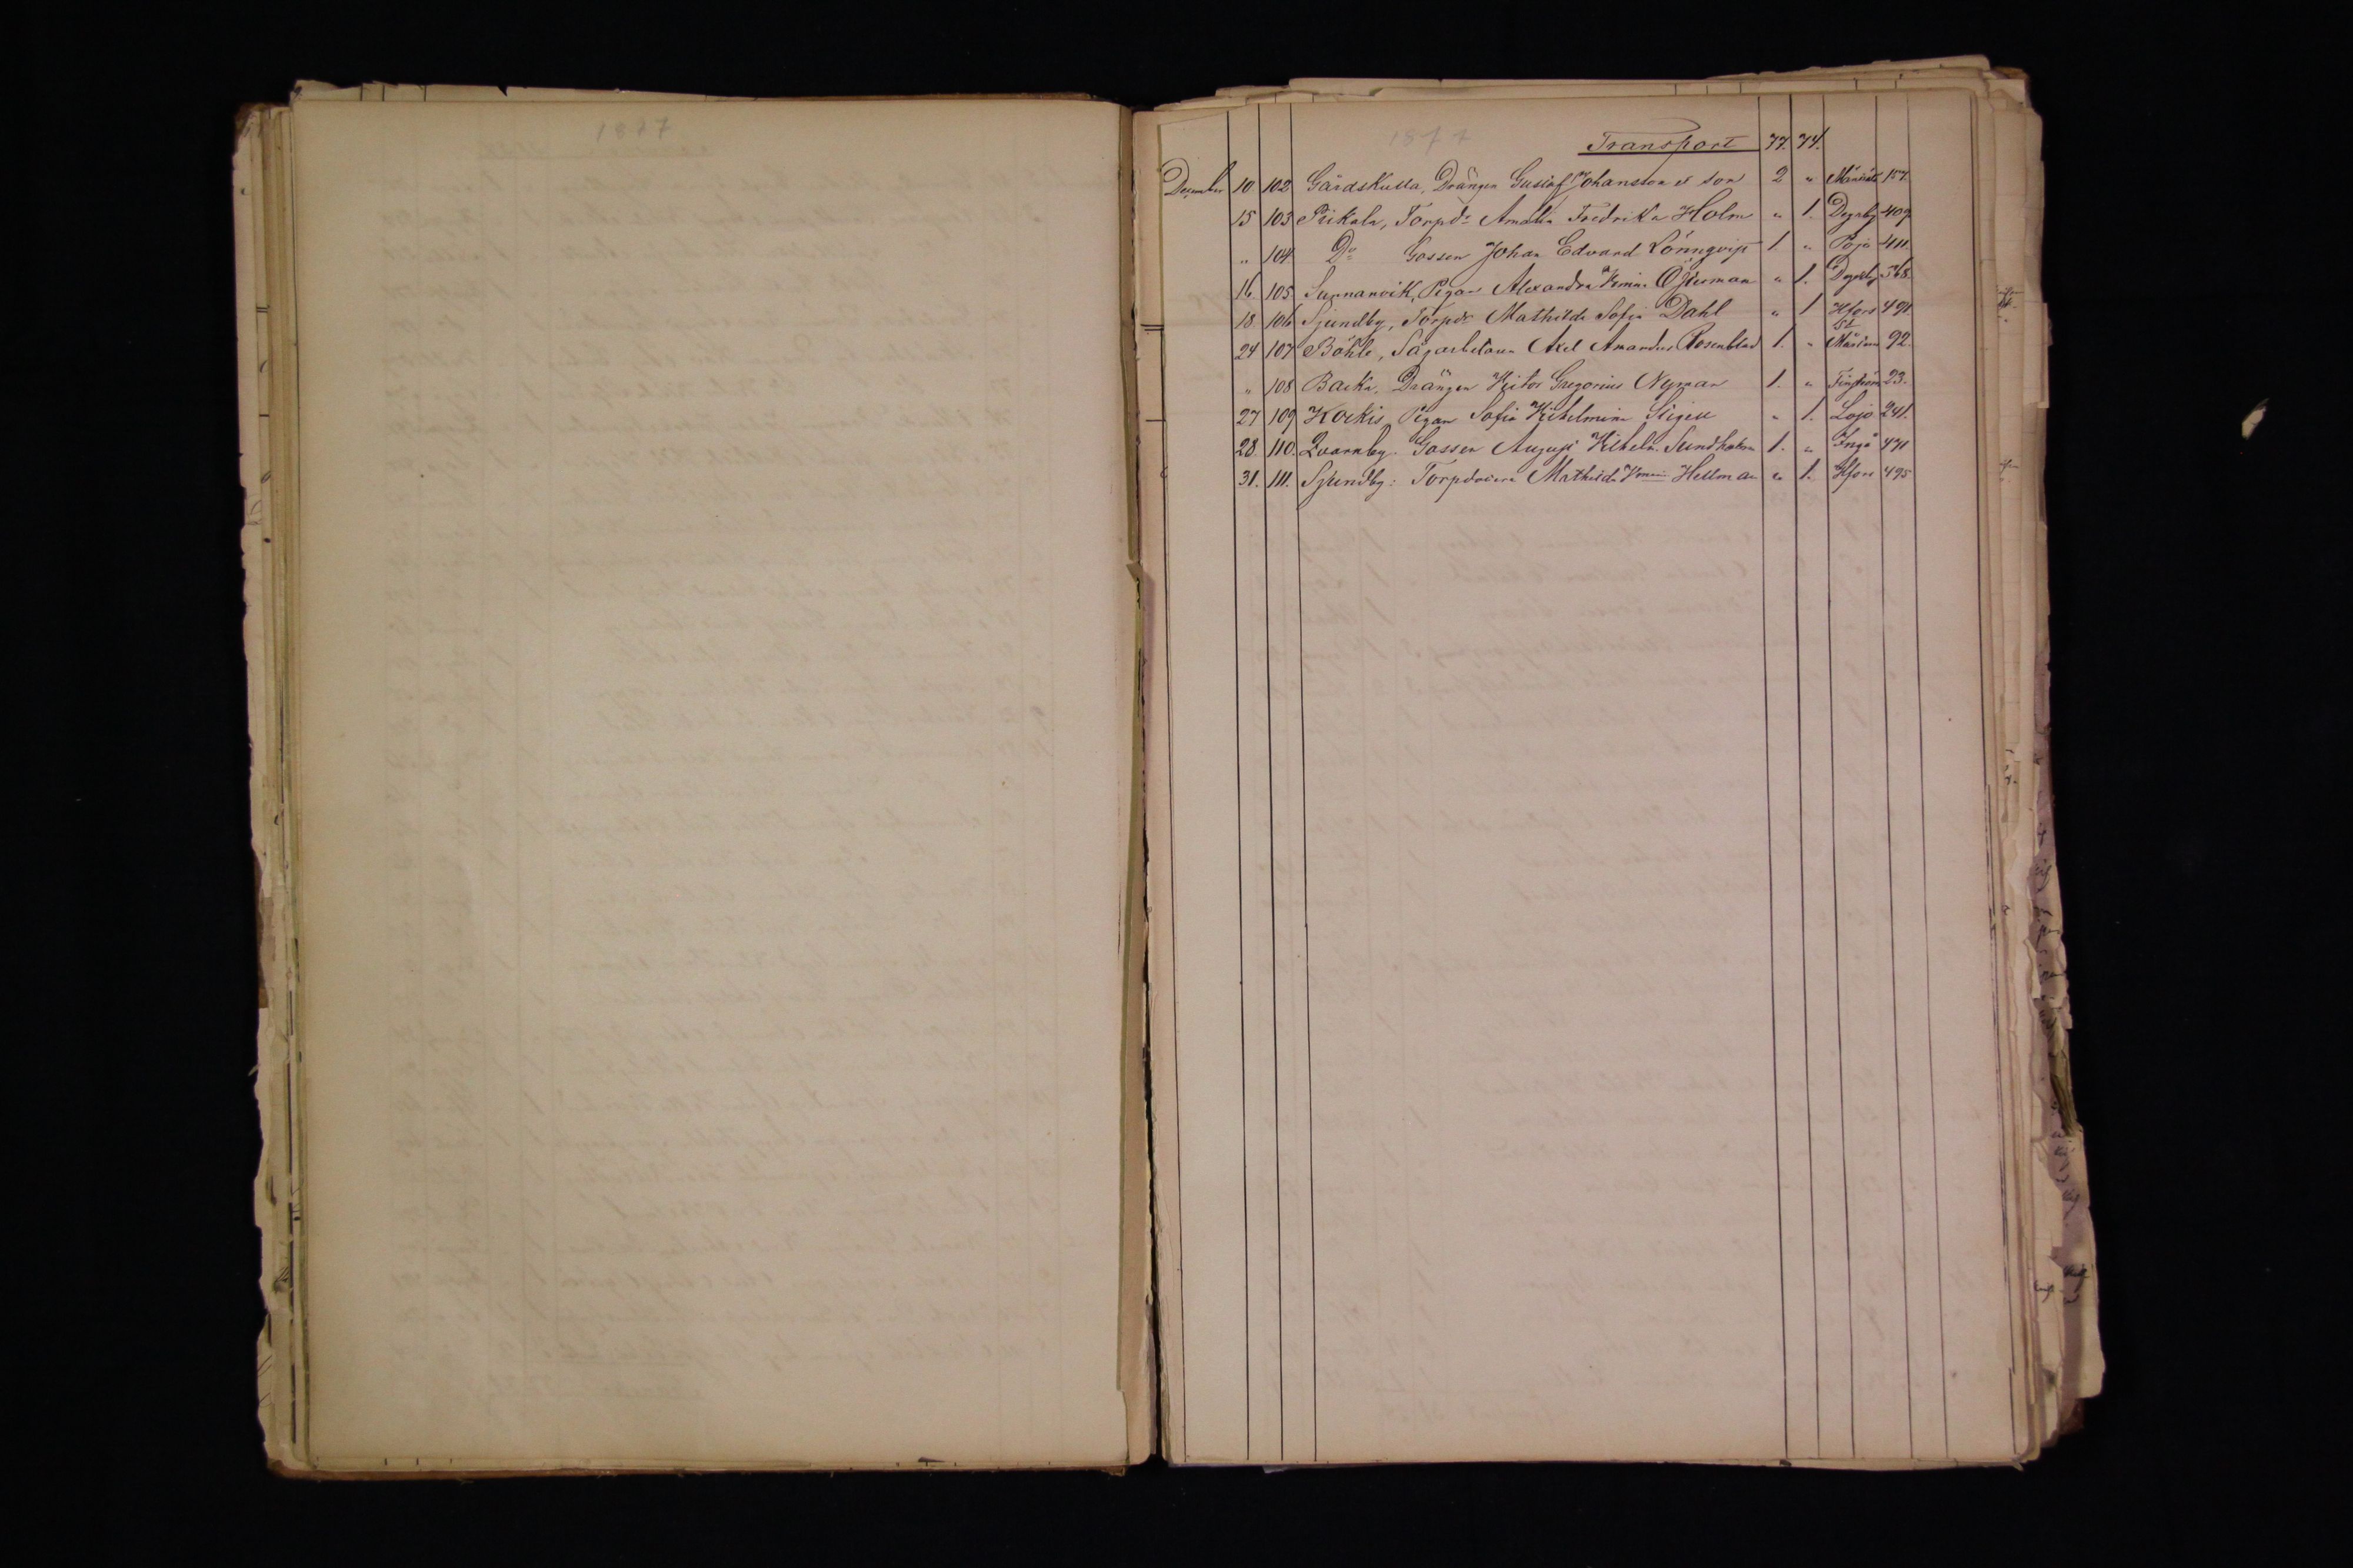 1877
1877
Transport 77. 74.
December 10 102 Gårdskulla, Drängen Gustaf Johansson et son 2 " 157.
15 103 Pikala, Torpd: Amalia Fredrika Holm " 1. Degerby 409
" 104 Do Gossen Johan Edvard Lönnqvist 1. " Pojo 411.
16. 105 Sunnanvik, Pigan Alexandra Vmina Österman " 1. Degerby 568.
18. 106 Sjundby, Torpdr Mathilda Sofia Dahl " 1 Hfors 491
24 107 Böhle, Sågarbetaren Axel Amandus Rosenblad 1. " St Mårtens 92.
" 108 Backa, Drängen Viktor Gregorius Nyman 1. " Finström 23.
27 109 Kockis, Pigan Sofia Vilhelmina " 1. Lojo 241.
28. 110. Qvarnby. Gossen August Vilhelm Sundholm 1. " Ingå 471
31. 111. Sjundby: Mathilda Vmina Hellman " 1. Hfors 495